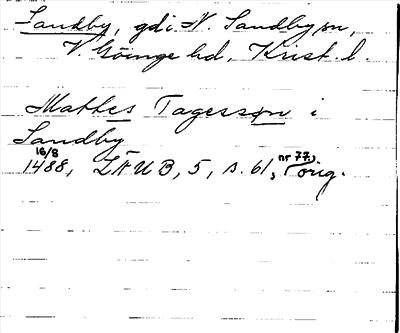 Sandby, gd i N. Sandby sn,
V. Göinge hd, Krist. l.
Mattes Tagesson i
Sandby
16/8 1488, LÄUB, 5, s. 61, nr 77), orig.